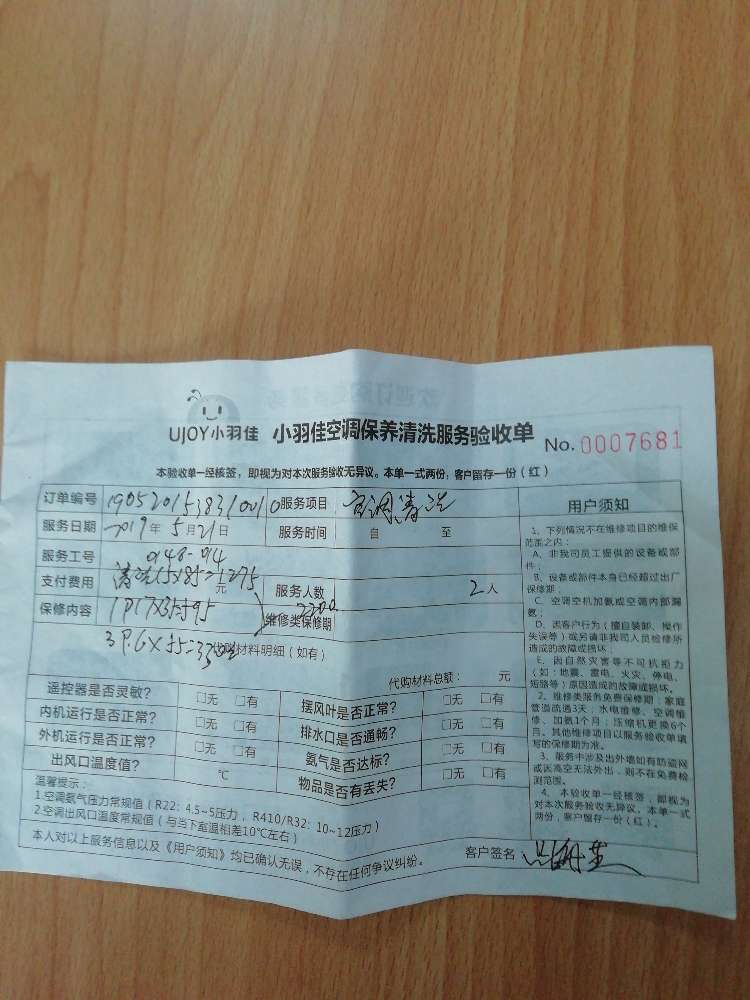 UJOY小羽佳 小羽佳空调保养清洗服务验收单 No. 0007681
本验收单一经核签，即视为对本次服务验收无异议。本单一式两份，客户留存一份（红）
订单编号 190520153831001 服务项目 空调清洗
服务日期 2019年5月21日 服务时间 自 至
服务工号 0148-014
支付费用 清洗15X85=1275 元 服务人数 2人
保修内容 维修类保修期
代购材料明细（如有）
代购材料总额： 元
遥控器是否灵敏? □无 □有 摆风叶是否正常? □无 □有
内机运行是否正常? □无 □有 排水口是否通畅? □无 □有
外机运行是否正常? □无 □有 氨气是否达标? □无 □有
出风口温度值? ℃ 物品是否有丢失? □无 □有
温馨提示：
1.空调氨气压力常规值（R22: 4.5~5压力，R410/R32: 10~12压力）
2.空调出风口温度常规值（与当下室温相差10℃左右）
本人对以上服务信息以及《用户须知》均已确认无误，不存在任何争议纠纷。 客户签名
用户须知
1、下列情况不在维修项目的维保
范围之内：
A、非我司员工提供的设备或部
件；
B、设备或部件本身已经超过出厂
保修期；
C、空调空机加氨或空调内部漏
氨；
D、因客户行为（擅自装卸、操作
失误等）或另请非我司人员检修所
造成的故障或损坏；
E、因自然灾害等不可抗拒力
（如：地震、雷电、火灾、停电、
短路等）原因造成的故障或损坏。
2、维修类服务免费保修期：家庭
管道疏通3天；水电维修、空调维
修、加氨1个月；压缩机更换6个
月。其他维修项目以服务验收单填
写的保修期为准。
3、服务中涉及出外墙如有防盗网
或因高空无法外出，则不在免费检
测范围。
4、本验收单一经核签，即视为
对本次服务验收无异议。本单一式
两份，客户留存一份（红）。